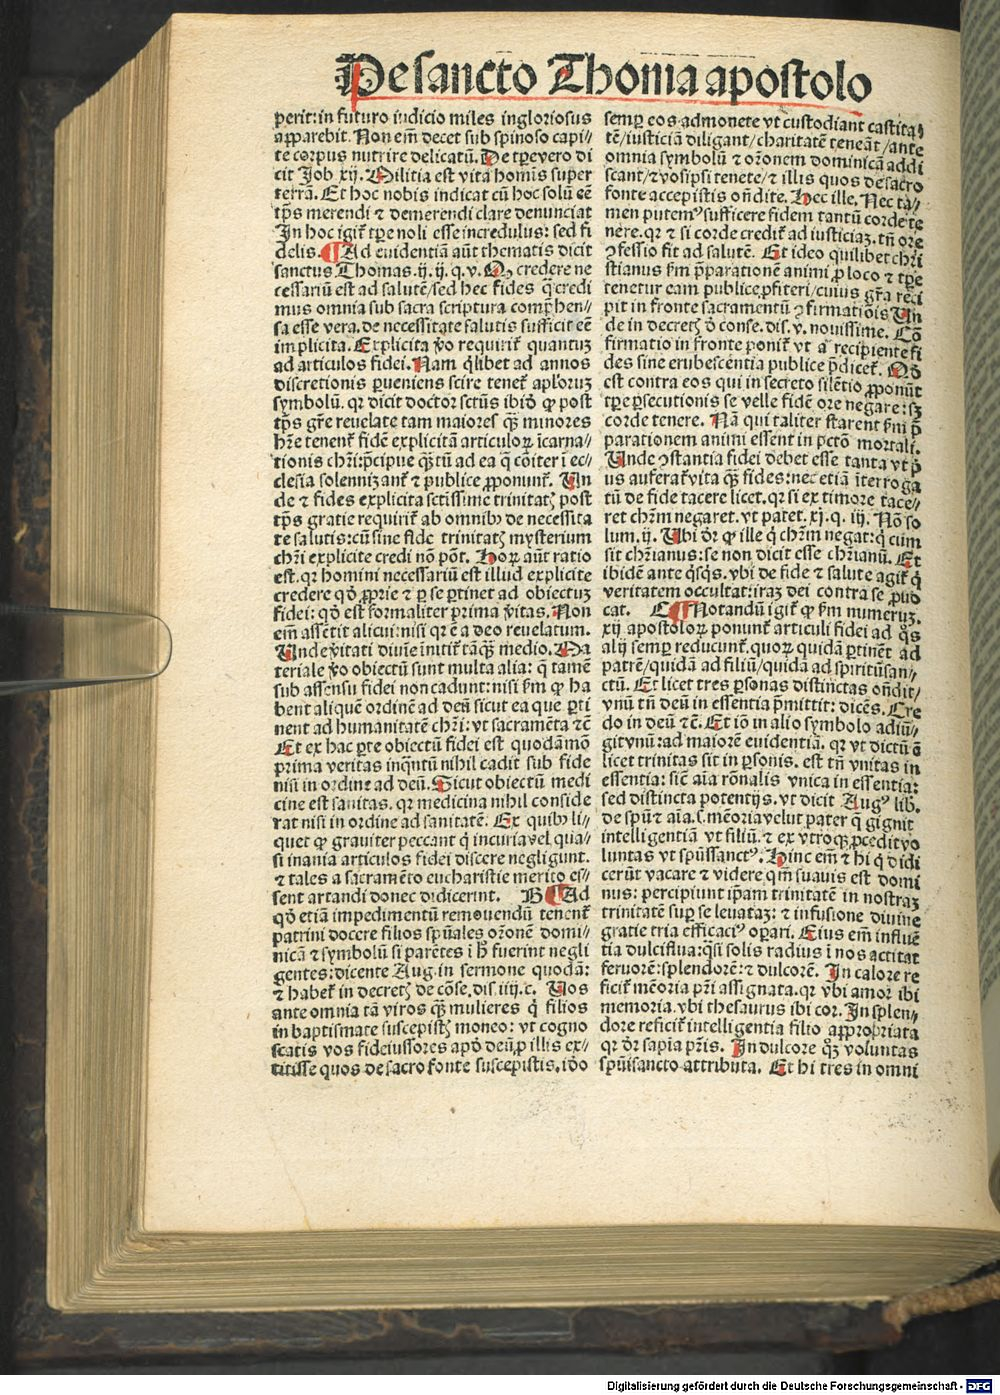 De sancto Thoma apostolo
perit: in futuro iudicio miles ingloriosus
apparebit. Non em̄ decet sub spinoso capi//
te corpus nutrire delicatū. De tꝑe vero di
cit Job xij. Militia est vita homīs super
terrā. Et hoc nobis indicat cū hoc solū eē
tp̄s merendi ⁊ demerendi clare denunciat
In hoc igit᷑ tꝑe noli esse incredulus: sed fi
delis. ¶ Ad euidentiā aūt thematis dicit
sanctus Thomas. ij. ij. q. v. Qꝫ credere ne
cessariū est ad salutē/sed hec fides q̄ credi
mus omnia sub sacra scriptura comp̄hen/
sa esse vera. de necessitate salutis sufficit eē
implicita. Explicita v̄o requirit᷑ quantuꝫ
ad articulos fidei. Nam q̇libet ad annos
discretionis ꝑueniens scire tenet᷑ apl'oruꝫ
symbolū. qꝛ dicit doctor sctūs ibid̄ ꝙ post
tp̄s gr̄e reuelate tam maiores qꝫ̄ minores
hr̄e tenent᷑ fidē explicitā articuloꝝ īcarna/
tionis chr̄i: p̄cipue qꝫ̄tū ad ea q̄ cōiter ī ec/
clesia solenniꝫant᷑ ⁊ publice ꝓponunt᷑. Un
de ⁊ fides explicita sctissime trinitatꝭ post
tp̄s gratie requirit᷑ ab omnibꝰ de necessita
te salutis: cū sine fide trinitatꝭ mysterium
chr̄i explicite credi nō pōt. Hoꝝ aūt ratio
est. qꝛ homini necessariū est illud explicite
credere qd̄ ꝓprie ⁊ ꝑ se ꝑtinet ad obiectuꝫ
fidei: qd̄ est formaliter prima v̄itas. Non
em̄ assētit alicui: nisi qꝛ ē a deo reuelatum.
Unde v̄itati diuīe initit᷑ tāqꝫ̄ medio. Ma
teriale v̄o obiectū sunt multa alia: q̄ tamē
sub assensu fidei non cadunt: nisi ẜm ꝙ ha
bent aliquē ordinē ad deū sicut ea que ꝑti
nent ad humanitatē chr̄i: vt sacramēta ⁊c̄
Et ex hac ꝑte obiectū fidei est quodāmō
prima veritas inq̄ntū nihil cadit sub fide
nisi in ordine ad deū. Sicut obiectū medi
cine est sanitas. qꝛ medicina nihil conside
rat nisi in ordine ad sanitatē. Ex quibꝰ li/
quet ꝙ grauiter peccant q̇ incuria vel qua/
si inania articulos fidei discere negligunt.
⁊ tales a sacramēto eucharistie merito es/
sent artandi donec didicerint. B ¶ Ad
qd̄ etiā impedimentū remouendū tenent᷑
patrini docere filios sp̄uales or̄onē domi//
nicā ⁊ symbolū si parētes ī h̄ fuerint negli
gentes: dicente Aug. in sermone quodā:
⁊ habet᷑ in decretꝭ de cōse. dis. iiij. c. Uos
ante omnia tā viros qꝫ̄ mulieres q̇ filios
in baptismate suscepistꝭ moneo: vt cogno
scatis vos fideiussores apd̄ deū ꝓ illis ex//
titisse quos de sacro fonte suscepistis. iđo
semꝑ eos admonete vt custodiant castita/
tē/iusticiā diligant/charitatē teneāt/ante
omnia symbolū ⁊ or̄onem dominicā addi
scant/⁊ vosipsi tenete/⁊ illis quos de sacro
fonte accepistis on̄dite. Hec ille. Nec ta/
men putemꝰ sufficere fidem tantū corde te
nere. qꝛ ⁊ si corde credit᷑ ad iusticiaꝫ. tn̄ ore
ꝯfessio fit ad salutē. Et ideo quilibet chri
stianus ẜm p̄parationē animi ꝓ loco ⁊ tꝑe
tenetur eam publice ꝓfiteri/cuius gr̄a reci
pit in fronte sacramentū ꝯfirmatiōis Un
de in decretꝭ d̄ conse. dis. v. nouissime. Cō
firmatio in fronte ponit᷑ vt a recipiente fi
des sine erubescentia publice p̄dicet᷑. Qđ
est contra eos qui in secreto silētio ꝓponūt
tꝑe ꝑsecutionis se velle fidē ore negare: sꝫ
corde tenere. Nā qui taliter starent ẜm p̄
parationem animi essent in pctō mortali.
Unde ꝯstantia fidei debet esse tanta vt p̄
us auferat᷑ vita qꝫ̄ fides: nec etiā īterroga
tū de fide tacere licet. qꝛ si ex timore tace/
ret chrm̄ negaret. vt patet. xj. q. iij. Nō so
lum. ij. Ubi dr̄ ꝙ ille q̇ chrm̄ negat: q̇ cum
sit chr̄ianus: se non dicit esse chr̄ianū. Et
ibidē ante q̇sqꝫ. vbi de fide ⁊ salute agit᷑ q̇
veritatem occultat: iraꝫ dei contra se ꝓuo
cat. C ¶ Notandū igit᷑ ꝙ ẜm numeruꝫ.
xij apostoloꝝ ponunt᷑ articuli fidei ad q̊s
alij semꝑ reducunt᷑. quoꝝ quidā ꝑtinēt ad
patrē/quidā ad filiū/quidā ad spiritūsan/
ctū. Et licet tres ꝑsonas distinctas on̄dit/
vnū tn̄ deū in essentia p̄mittit: dicēs. Cre
do in deū ⁊c̄. Et iō in alio symbolo adiū/
git vnū: ad maiorē euidentiā. qꝛ vt dictū ē
licet trinitas sit in ꝑsonis. est tn̄ vnitas in
essentia: sic̄ aīa rōnalis vnica in essentia:
sed distincta potentijs. vt dicit Augꝰ lib.
de spū ⁊ aīa. s. mēoria velut pater q̄ gignit
intelligentiā vt filiū. ⁊ ex vtroqꝫ ꝓcedit vo
luntas vt spūssanctꝰ. Hinc em̄ ⁊ hi q̇ didi
cerūt vacare ⁊ videre qm̄ suauis est domi
nus: percipiunt ip̄am trinitatē in nostraꝫ
trinitatē suꝑ se leuataꝫ: ⁊ infusione diuine
gratie tria efficaciꝰ oꝑari. Eius em̄ influē
tia dulciflua: q̄si solis radius ī nos actitat
feruorē: splendorē: ⁊ dulcorē. In calore re
ficit᷑ mēoria pr̄i assignata. qꝛ vbi amor ibi
memoria. vbi thesaurus ibi cor. In splen/
dore reficit᷑ intelligentia filio appropriata
qꝛ dr̄ sapia pr̄is. In dulcore qꝫ voluntas
spūisancto attributa. Et hi tres in omni
Digitalisierung gefördert durch die Deutsche Forschungsgemeinschaft - DFG